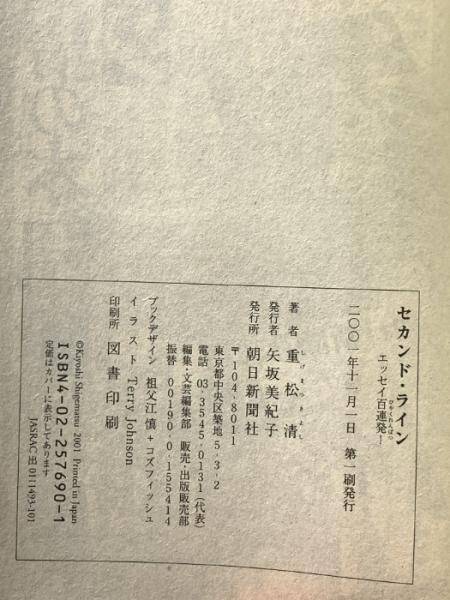 セカンド・ライン
エッセイ百連発!
ひゃくれんぱつ
二〇〇一年十一月一日 第一刷発行
著者 重松 清
しげまつきよし
発行者 矢坂美紀子
発行所 朝日新聞社
〒104-8011
東京都中央区築地5-3-2
電話 03・3545・0131(代表)
編集・文芸編集部 販売・出版販売部
振替 00190-0-155414
ブックデザイン 祖父江 慎+コズフィッシュ
イラスト Terry Johnson
印刷所 図書印刷
©Kiyoshi Shigematsu 2001 Printed in Japan
ISBN4-02-257690-1
定価はカバーに表示してあります
JASRAC 出 0111493-101